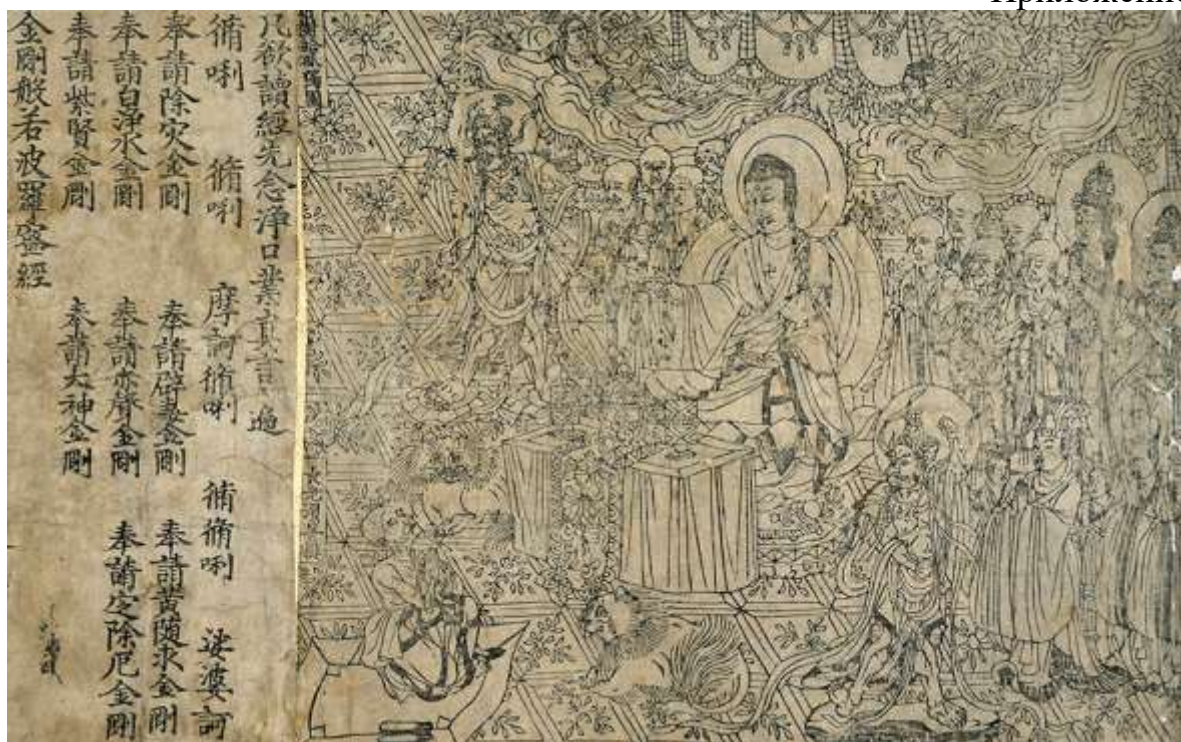 Приложение
凡欲讀經先念淨口業真言 遍
脩唎 脩唎 摩訶脩唎 脩脩唎 娑婆訶
奉請除灾金剛 奉請辟毒金剛 奉請黄隨求金剛
奉請白淨水金剛 奉請赤聲金剛 奉請定除厄金剛
奉請紫賢金剛 奉請大神金剛
金剛般若波羅蜜經